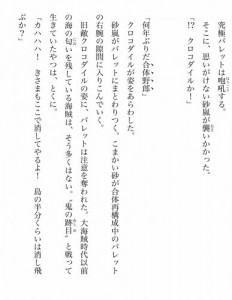 究極バレットは咆哮する。
そこに、思いがけない砂嵐が襲いかかった。
「!?　クロコダイルか！」
「何年ぶりだ合体野郎」
クロコダイルが姿をあらわした。
砂嵐がバレットにまとわりつく。こまかい砂が合体再構成中のバレット
の右腕の隙間に入りこんでいく。
旧敵クロコダイルの姿に、バレットは注意を奪われた。大海賊時代以前
の海の匂いを残している海賊は、そう多くはない。〝鬼の跡目〟と戦って
生きていたやつは、とくに。
「カハハハ！　きさまもここで消してやるよ！　島の半分くらいは消し飛
ぶか？」